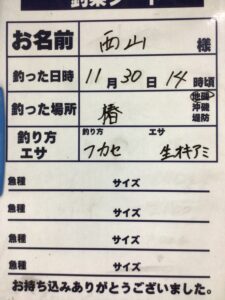 釣果シート
お名前 西山 様
釣った日時 11月30日14時頃
釣った場所 椿 地磯 沖磯 堤防
釣り方 エサ 釣り方 フカセ エサ 生オキアミ
魚種 サイズ
魚種 サイズ
魚種 サイズ
魚種 サイズ
お持ち込みありがとうございました。